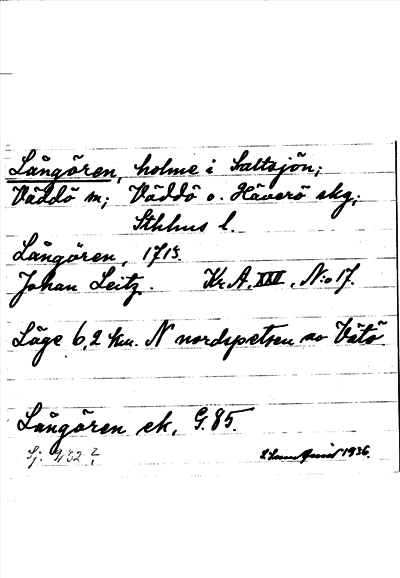 Långören, holme i Saltsjön;
Väddö sn; Väddö o. Häverö skg;
Sthlms l.
Långören, 1715.
Johan Leitz. Kr. A. XXII, N:o 17.
Läge 6,2 km. N nordspetsen av Vätö
Långören ek. G.85.
Sj. 932?
1936.